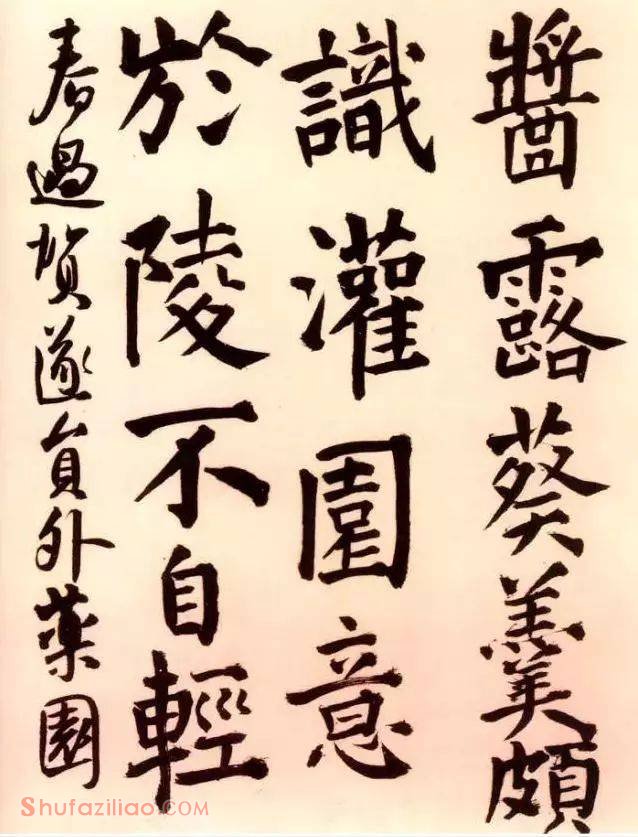 醬露葵羹頗
識灌園意
於陵不自輕
春過賀遂員外藥園
Shufaziliao.COM